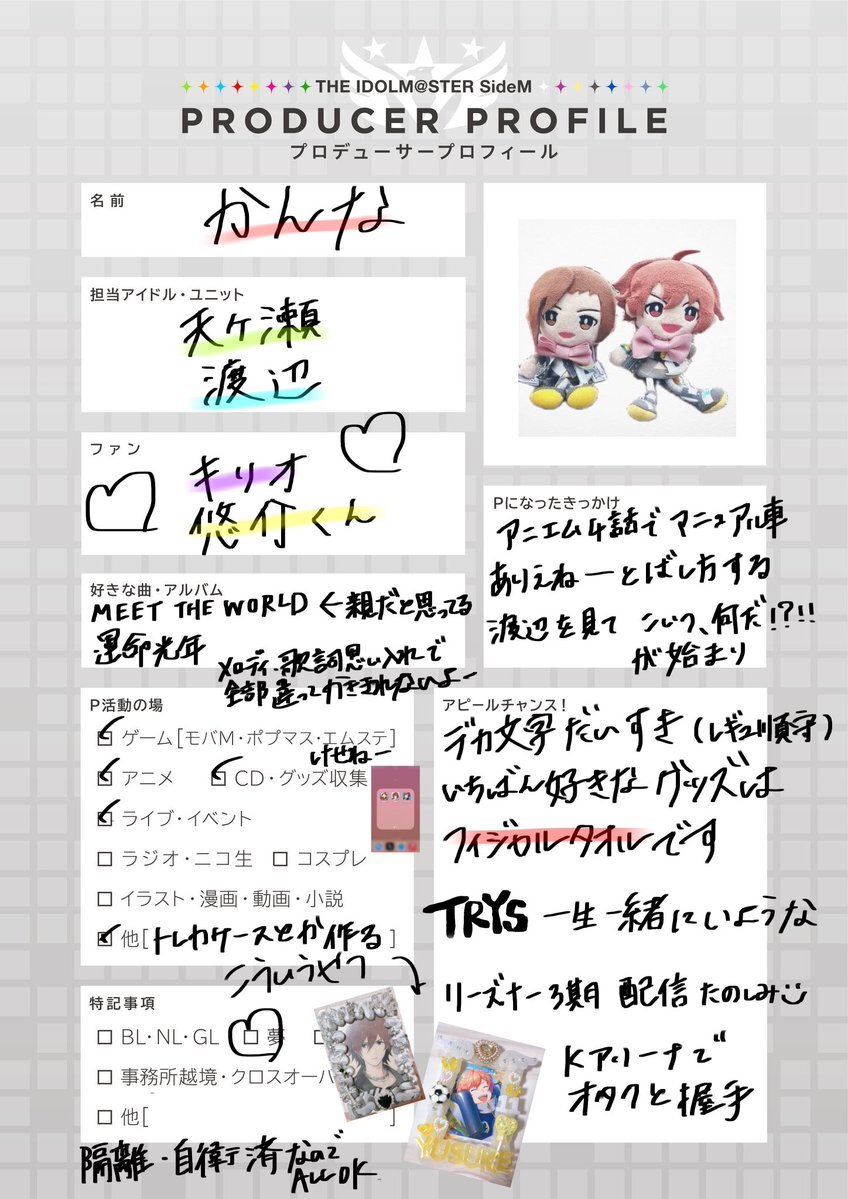 THE IDOLM@STER SideM
PRODUCER PROFILE
プロデューサープロフィール
名前
かんな
担当アイドル・ユニット
天ケ瀬
渡辺
ファン
キリオ
悠介くん
好きな曲・アルバム
MEET THE WORLD ← 親だと思ってる
運命光年
メロディ・歌詞・思い入れで
全部違ってかききれないよー
Pになったきっかけ
アニエム4話でマニュアル車
ありえねーとばし方する
渡辺を見て こいつ、何だ!?!!
が始まり
P活動の場
ゲーム[モバM・ポプマス・エムステ]
けせねー
アニメ
CD・グッズ収集
ライブ・イベント
ラジオ・ニコ生
コスプレ
イラスト・漫画・動画・小説
他[トレカケースとか作る]
こういうやつ
特記事項
BL・NL・GL
夢
事務所越境・クロスオーバ
他[
隔離・自衛済なので
ALL OK
アピールチャンス!
デカ文字だいすき(レギュ順守)
いちばん好きなグッズは
フィジカルタオルです
TRYS 一生一緒にいような
リーズナー3期 配信たのしみ
Kアリーナで
オタクと握手
YUSUKE